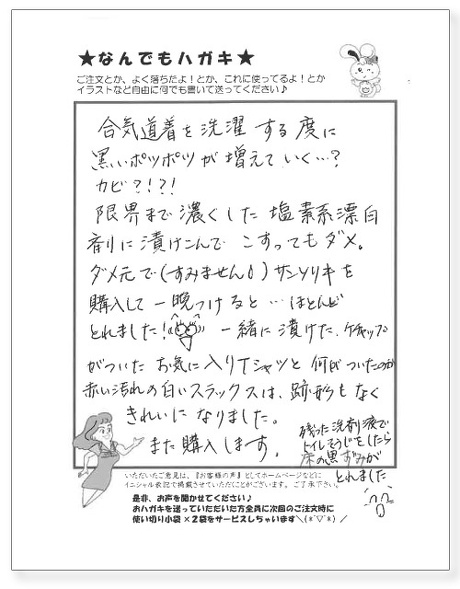 ★なんでもハガキ★
ご注文とか、よく落ちたよ！とか、これに使ってるよ！とか
イラストなど自由に何でも書いて送ってください♪
合気道着を洗濯する度に
黒いポツポツが増えていく…?
カビ?!?!
限界まで濃くした塩素系漂白
剤に漬けこんでこすってもダメ。
ダメ元で(すみません)サンソリキを
購入して一晩つけると…ほとんど
とれました! 一緒に漬けた、ケチャップ
がついたお気に入りTシャツと何がついたのか
赤い汚れの白いスラックスは、跡形もなく
きれいになりました。
また購入しまーす。
残った洗剤液で
トイレそうじをしたら
床の黒ずみが
とれました
いただいたご意見は、『お客様の声』としてホームページなどに
イニシャル表記で掲載させていただことがございます。ご了承下さい。
是非、お声を聞かせてください♪
おハガキを送っていただいた方全員に次回のご注文時に
使い切り小袋×2袋をサービスしちゃいます＼(*´▽`*)／